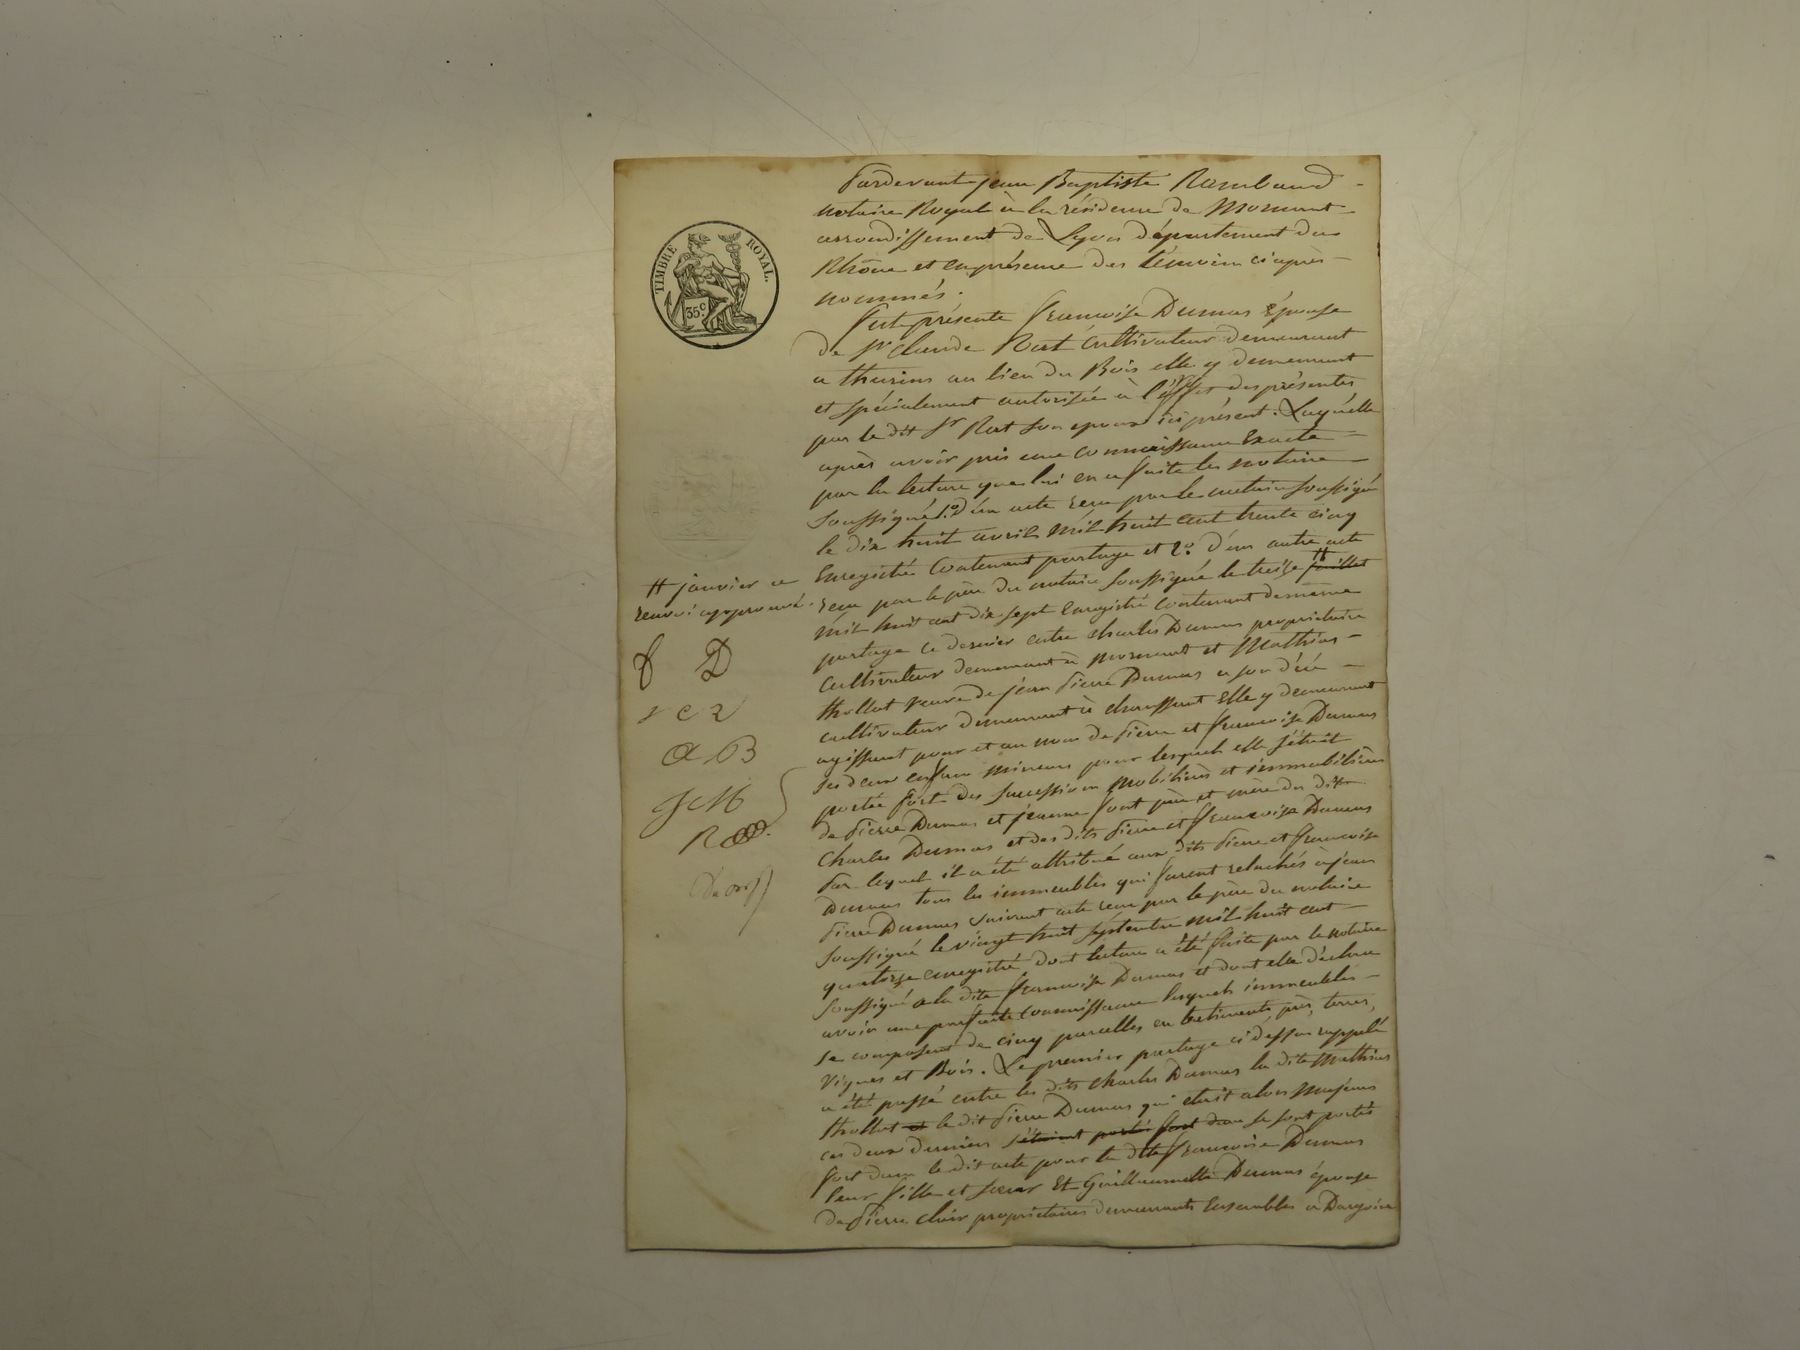 TIMBRE ROYAL.
35 c.
Pardevant jean Baptiste Rambaud
notaire Royal à la résidence de Mornant
arrondissement de Lyon département du
Rhône et en présence des témoins ci après
nommés.
fut présente françoise Dumas épouse
de Sr Claude Rat cultivateur demeurant
a thurins au lieu du Bois elle y demeurant
et spécialement autorisée à l'effet des présentes
par le dit Sr Rat son epoux ici présent. Laquelle
après avoir pris une connaissance Exacte
par la lecture que lui en a faite le notaire
soussigné 1o. D'un acte recu par le notaire soussigné
le dix huit avril mil huit cent trente cinq
Enregistré Contenant partage et 2o. D'un autre acte
recu par le père du notaire soussigné le treize juillet
# janvier ce
renvoi approuvé.
mil huit cent dix sept Enregistré contenant de même
partage ce dernier entre charles Dumas propriétaire
cultivateur demeurant à mornant et Mathias
thollot veuve de jean Pierre Dumas a son décé
cultivateur demeurant à chaussant Elle y demeurant
agissant pour et au nom de Pierre et françoise Dumas
ses deux enfans mineurs pour lesquels elle s'était
portée fort des succession mobilières et immobilières
de Pierre Dumas et jeanne font père et mère du dit
Charles Dumas et des dits Pierre et françoise Dumas
Par lequel il a été attribué aux dits Pierre et francoise
Dumas tous les immeubles qui furent relachés à jean
Pierre Dumas suivant acte recu par le père du notaire
soussigné le vingt huit septembre mil huit cent
quatorze enregistré dont lecture a été faite par le notaire
soussigné a la dite françoise Dumas et dont elle déclare
avoir une parfaite connaissance lesquels immeubles
se composent de cinq parcelles en batiments, prés, terres,
Vignes et Bois. Le premier partage ci dessus rappelé
a été passé entre les dits charles Dumas la dite Mathias
thollot et le dit Pierre Dumas qui etait alors majeur
ces deux derniers s'étaient porté fort dans se sont portés
fort dans le dit acte pour la dite françoise Dumas
leur fille et sœur Et Guillaumette Dumas épouse
de Pierre Choir propriétaires demeurants Ensembles à Dargoire
f D
r c r
a B
J C M
R